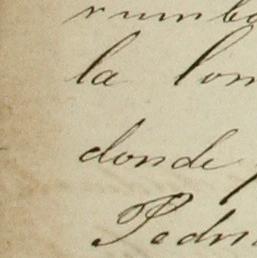 rumbo
la lom
donde
Pedr